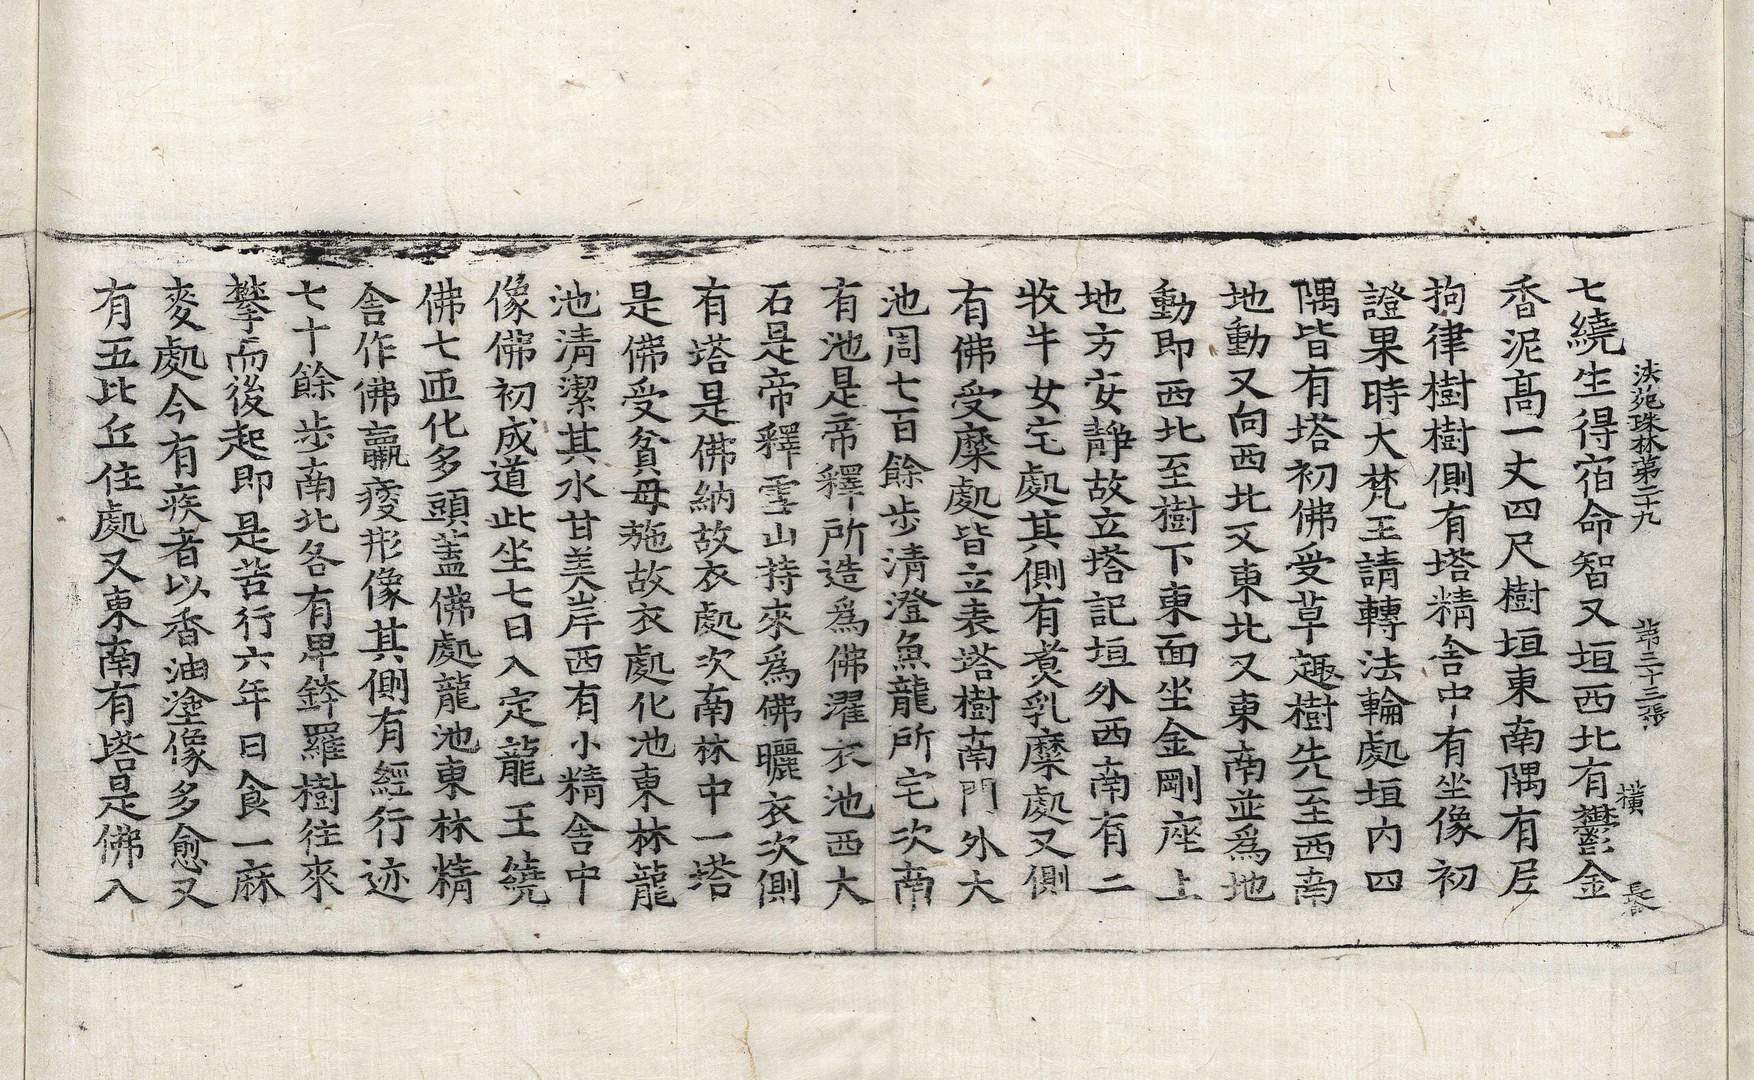 七繞生得宿命智又垣西北有鬱金
香泥高一丈四尺樹垣東南隅有尼
拘律樹樹側有塔精舍中有坐像初
證果時大梵王請轉法輪處垣內四
隅皆有塔初佛受草趣樹先至西南
地動又向西北又東北又東南並爲地
動即西北至樹下東面坐金剛座上
地方安靜故立塔記垣外西南有二
牧牛女宅處其側有煮乳糜處又側
有佛受糜處皆立表塔樹南門外大
池周七百餘步清澄魚龍所宅次南
有池是帝釋所造爲佛濯衣池西大
石是帝釋雪山持來爲佛曬衣次側
有塔是佛納故衣處次南林中一塔
是佛受貧母施故衣處化池東林龍
池清潔其水甘美岸西有小精舍中
像佛初成道此坐七日入定龍王繞
佛七匝化多頭蓋佛處龍池東林精
舍作佛羸瘦形像其側有經行迹
七十餘步南北各有畢鉢羅樹往來
攀而後起即是苦行六年日食一麻
麥處今有疾者以香油塗像多愈又
有五比丘住處又東南有塔是佛入
法苑珠林第二十九　第三十三張　橫